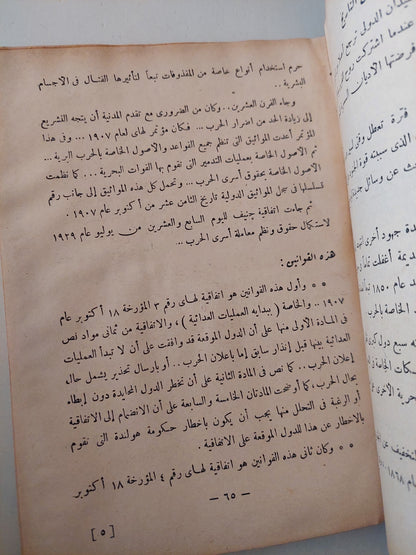 حرم استخدام أنواع خاصة من المقذوفات تبعاً لتأثيرها القتال فى الاجسام
البشرية ..
وجاء القرن العشرين .. وكان من الضرورى مع تقدم المدنية أن يتجه التشريع
إلى زيادة الحد من اضرار الحرب ... فكان مؤتمر لهاى لعام ١٩٠٧ .. وفى هذا
المؤتمر أعدت المواثيق التى تنظم جميع القواعد والاصول الخاصة بالحرب البرية ...
ثم الاصول الخاصة بعمليات التدمير التى تقوم بها القوات البحرية ... كما نظمت
الاصول الخاصة بحقوق أسرى الحرب ... وتحمل كل هذه المواثيق إلى جانب رقم
تسلسلها فى سجل المواثيق الدولية تاريخ الثامن عشر من أكتوبر عام ١٩٠٧ .
ثم جاءت اتفاقية جنيف لليوم السابع والعشرين من يوليو عام ١٩٢٩
لاستكمال حقوق ونظم معاملة أسرى الحرب ..
هذه القوانين :
* * وأول هذه القوانين هو اتفاقية لهاى رقم ٣ المؤرخة ١٨ أكتوبر عام
١٩٠٧ .. والخاصة ( ببداية العمليات العدائية ) ، والاتفاقية من ثمانى مواد نص
فى المادة الاولى منها على أن الدول الموقعة قد وافقت على أن لا تبدأ العمليات
العدائية بينها قبل إنذار سابق إما باعلان الحرب .. أو بارسال تحذير يشمل حال
إعلان الحرب .. كما نص فى المادة الثانية على أن تخطر الدول المحايدة دون إبطاء
بحال الحرب ، كما أوضحت المادتان الخامسة والسابعة على أن الانضمام إلى الاتفاقية
أو الرغبة فى التحلل منها يجب أن يكون بإخطار حكومة هولندة التى تقوم
بالاخطار عن هذا للدول الموقعة على الاتفاقية .
* * وكان ثانى هذه القوانين هو اتفاقية لهاى رقم ٤ المؤرخة ١٨ أكتوبر
— ٦٥ —
[ ٥ ]